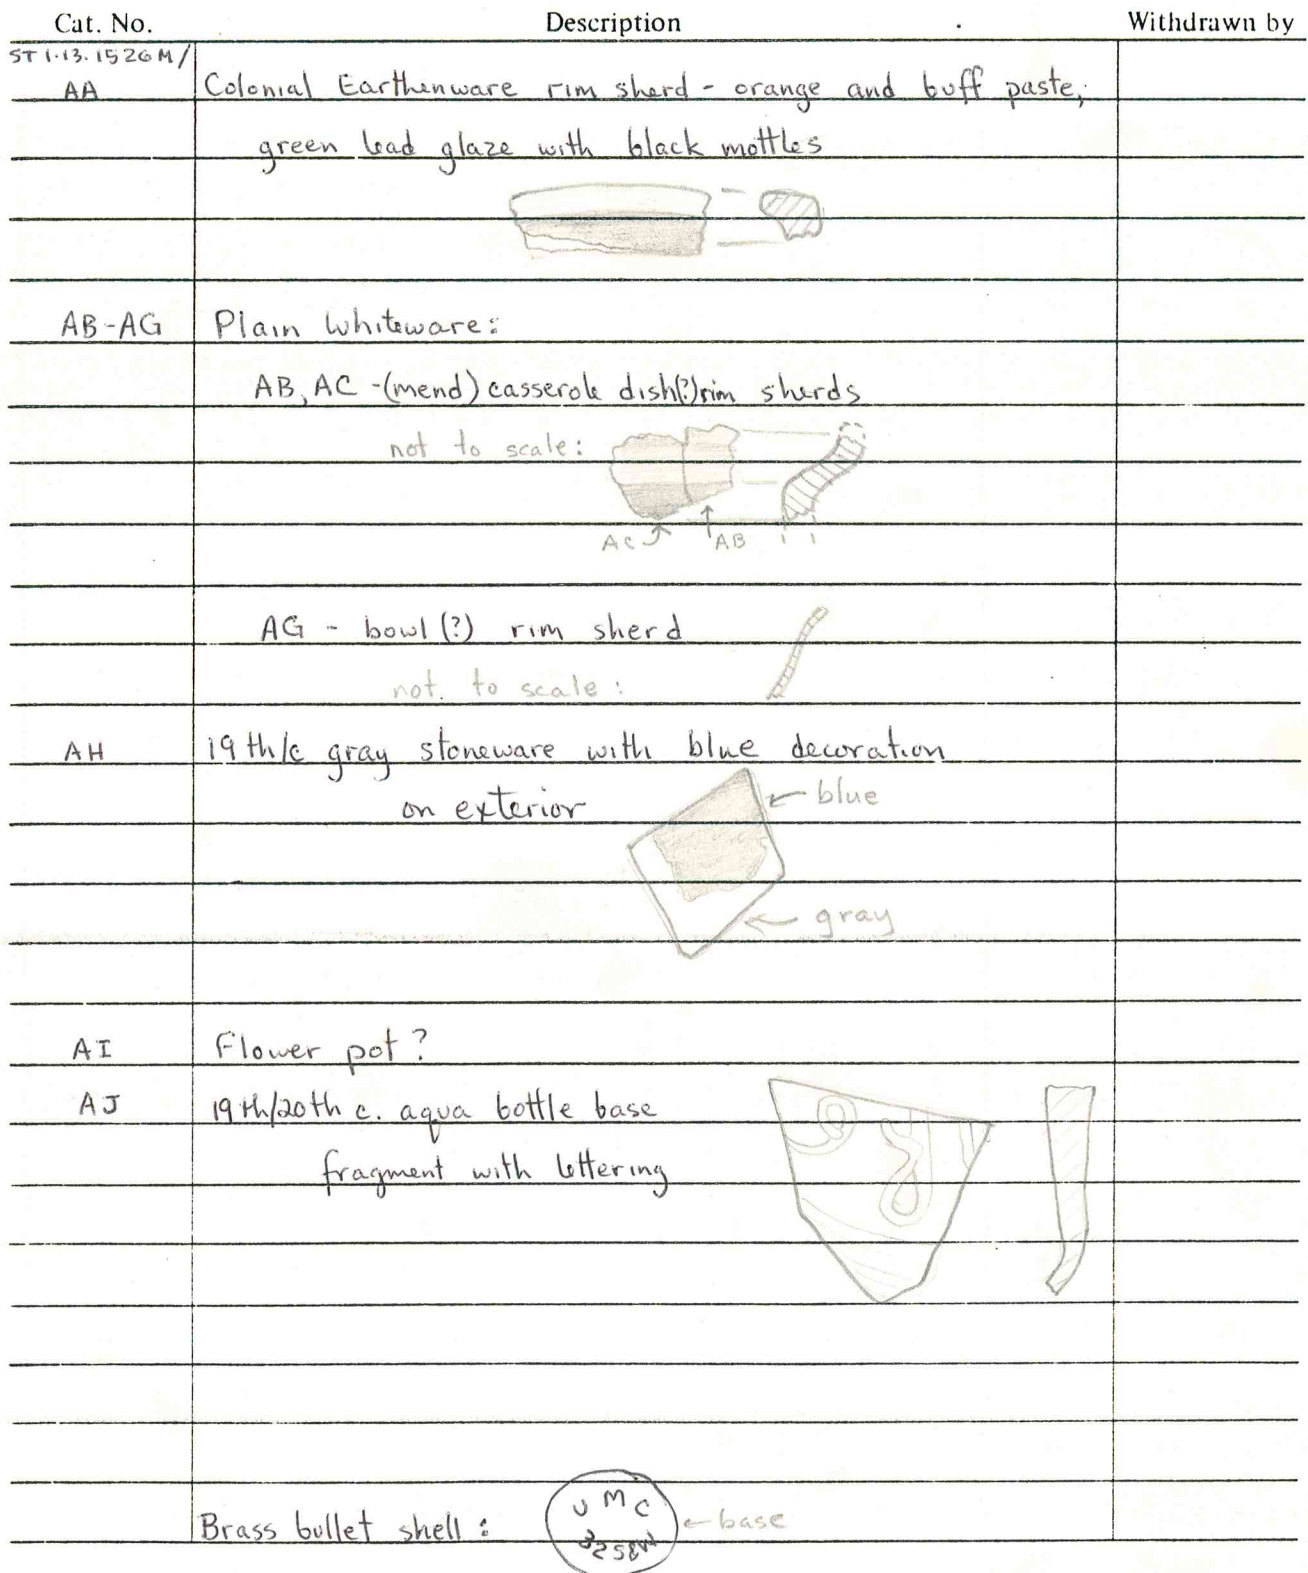 Cat. No. Description Withdrawn by
ST 1.13.1526M/
AA Colonial Earthenware rim sherd - orange and buff paste,
green lead glaze with black mottles
AB-AG Plain Whiteware:
AB, AC -(mend) casserole dish(?) rim sherds
not to scale:
AC AB
AG - bowl (?) rim sherd
not to scale:
AH 19th/c gray stoneware with blue decoration
on exterior
blue
gray
AI Flower pot?
AJ 19th/20th c. aqua bottle base
fragment with lettering
UMC
Brass bullet shell: base